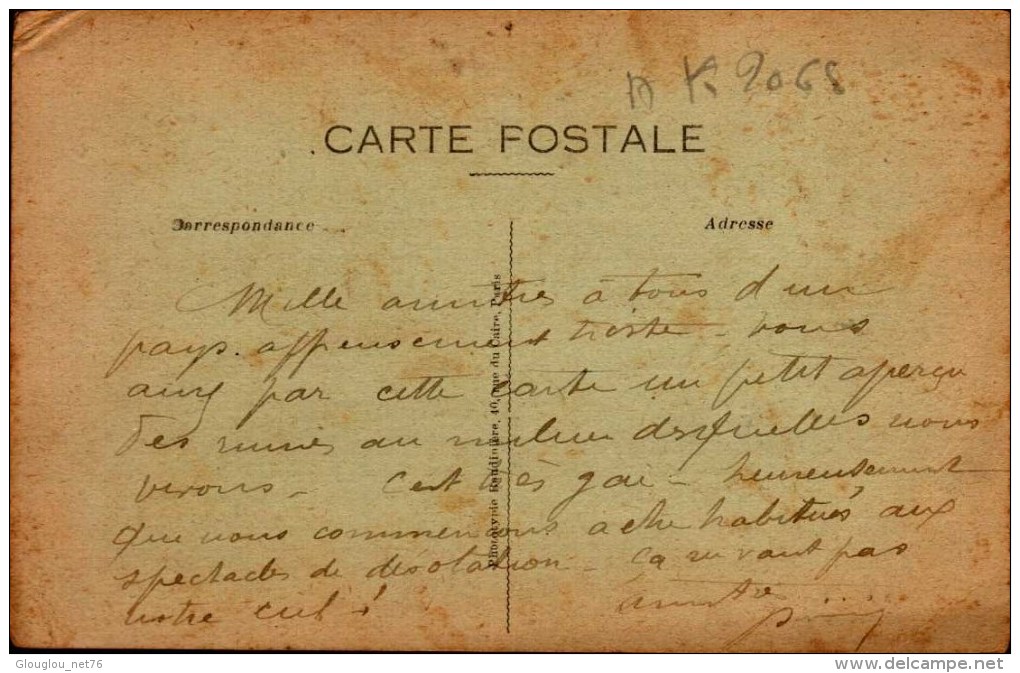 A K 9068
CARTE POSTALE
Correspondance
Adresse
Phototypie Baudinière, 40, rue du Caire, Paris
Mille amitiés à tous d'un
pays affreusement triste - vous
aurez par cette carte un petit aperçu
des ruines au milieu desquelles nous
vivons - C'est très gai - heureusement
que nous commençons a être habitués aux
spectacles de désolation - ça ne vaut pas
notre ciel !
Amitiés ....
Glouglou_net76
www.delcampe.net